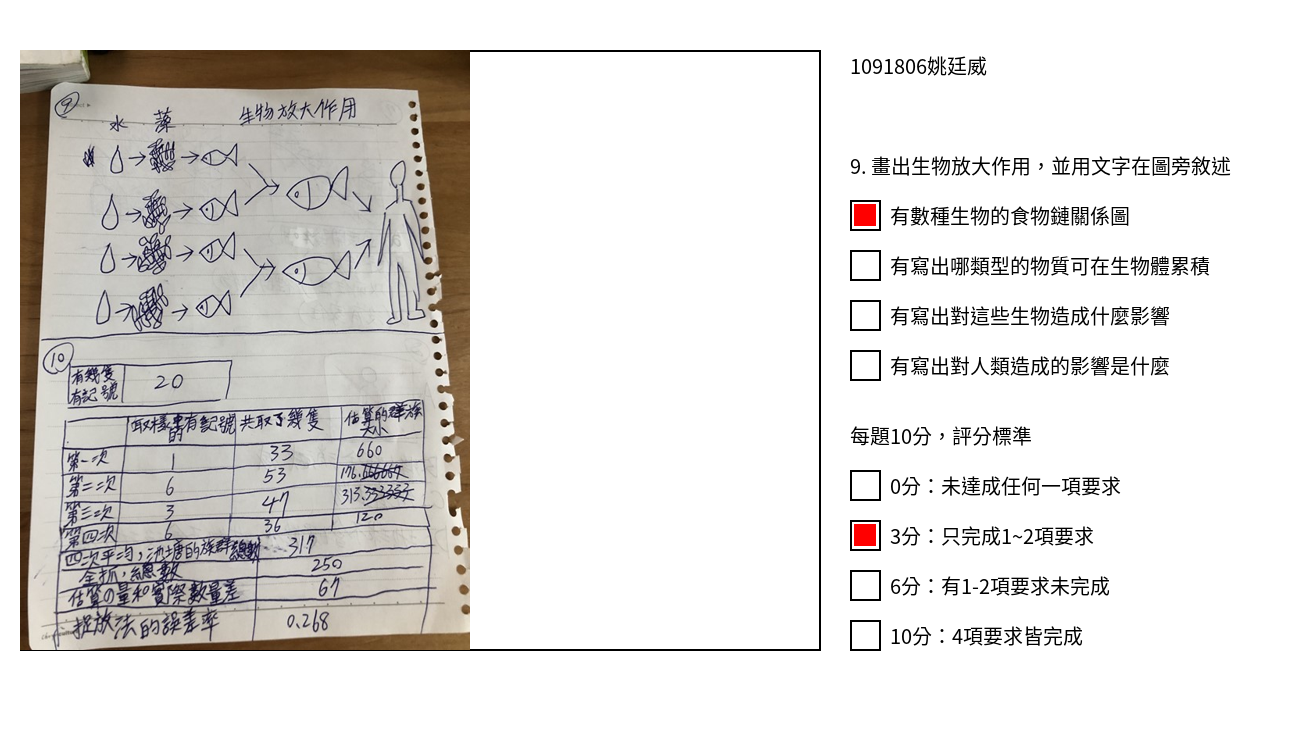 ⑨
水 藻 生物放大作用
⑩
有幾隻有記號 20
取樣中有記號的 共取了幾隻 估算的群族大小
第一次 1 33 660
第二次 6 53 176.666667
第三次 3 47 313.333333
第四次 6 36 120
四次平均,池塘的族群總數 317
全抓,總數 250
估算の量和實際數量差 67
捉放法的誤差率 0.268
1091806姚廷威
9. 畫出生物放大作用，並用文字在圖旁敘述
有數種生物的食物鏈關係圖
有寫出哪類型的物質可在生物體累積
有寫出對這些生物造成什麼影響
有寫出對人類造成的影響是什麼
每題10分，評分標準
0分：未達成任何一項要求
3分：只完成1~2項要求
6分：有1-2項要求未完成
10分：4項要求皆完成